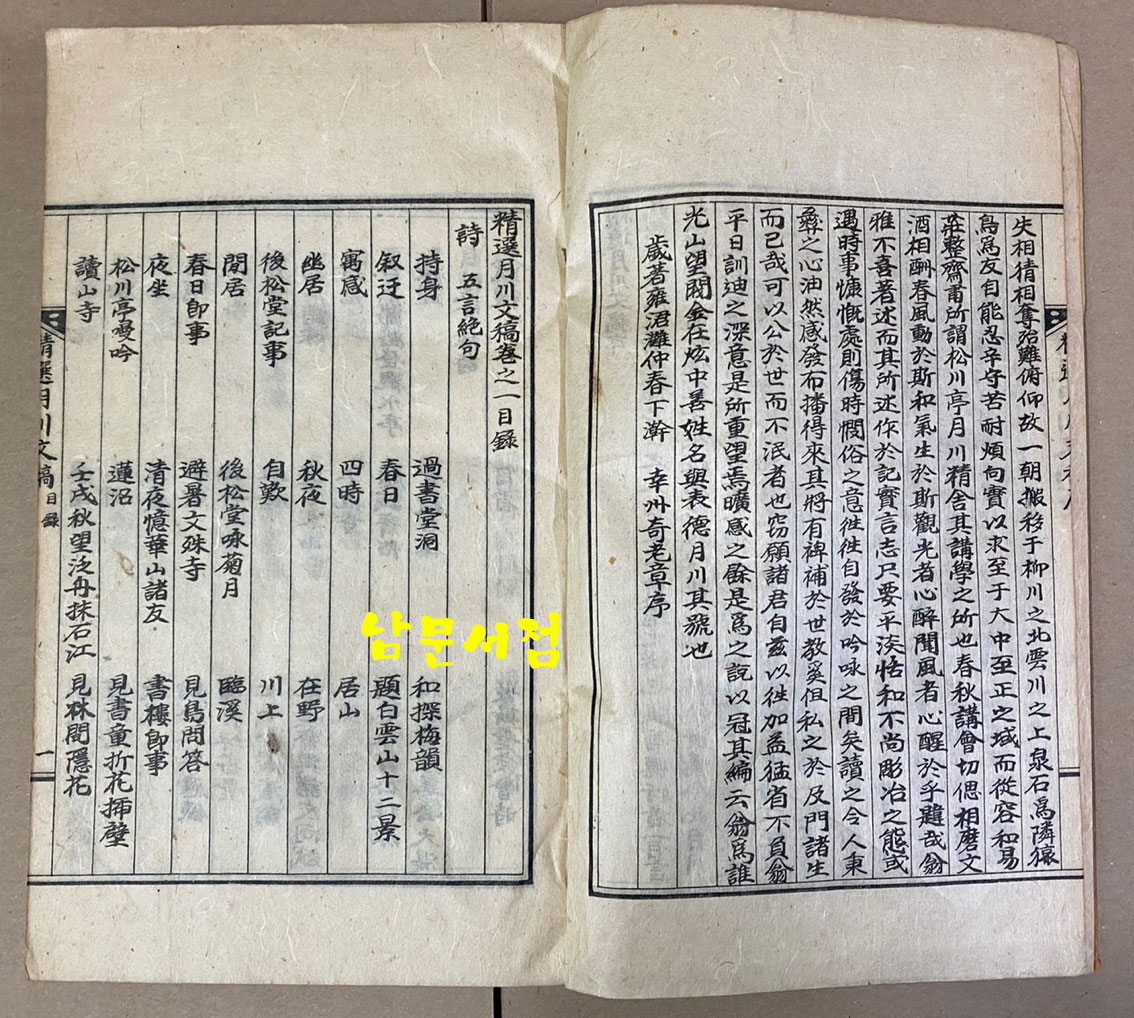 失相猜相奪殆難俯仰故一朝搬移于柳川之北雲川之上泉石爲隣猿
鳥爲友自能忍辛守苦耐煩向實以求至于大中至正之域而從容和易
莊整齋肅所謂松川亭月川精舍其講學之所也春秋講會切偲相磨文
酒相酬春風動於斯和氣生於斯觀光者心醉聞風者心醒於乎韙哉翁
雅不喜著述而其所述作於記實言志只要平淡恬和不尚彫冶之態或
遇時事慷慨處則傷時憫俗之意徃徃自發於吟咏之間矣讀之令人秉
彛之心油然感發布播得來其將有裨補於世教奚但私之於及門諸生
而已哉可以公於世而不泯者也窃願諸君自玆以徃加益猛省不負翁
平日訓迪之深意是所重望焉曠感之餘是爲之說以冠其編云翁爲誰
光山望閥金在炫中善姓名與表德月川其號也
歲著雍涒灘仲春下澣 幸州奇老章序
精選月川文稿卷之一目錄
詩 五言絶句
持身 過書堂洞 和探梅韻
叙迂 春日 題白雲山十二景
寓感 四時 居山
幽居 秋夜 在野
後松堂記事 自歎 川上
閒居 後松堂咏菊月 臨溪
春日卽事 避暑文殊寺 見鳥問答
夜坐 清夜憶華山諸友 書樓卽事
松川亭謾吟 蓮沼 見書童折花揷壁
讀山寺 壬戌秋望泛舟抹石江 見林間隱花
精選月川文稿 目錄 一
남문서점